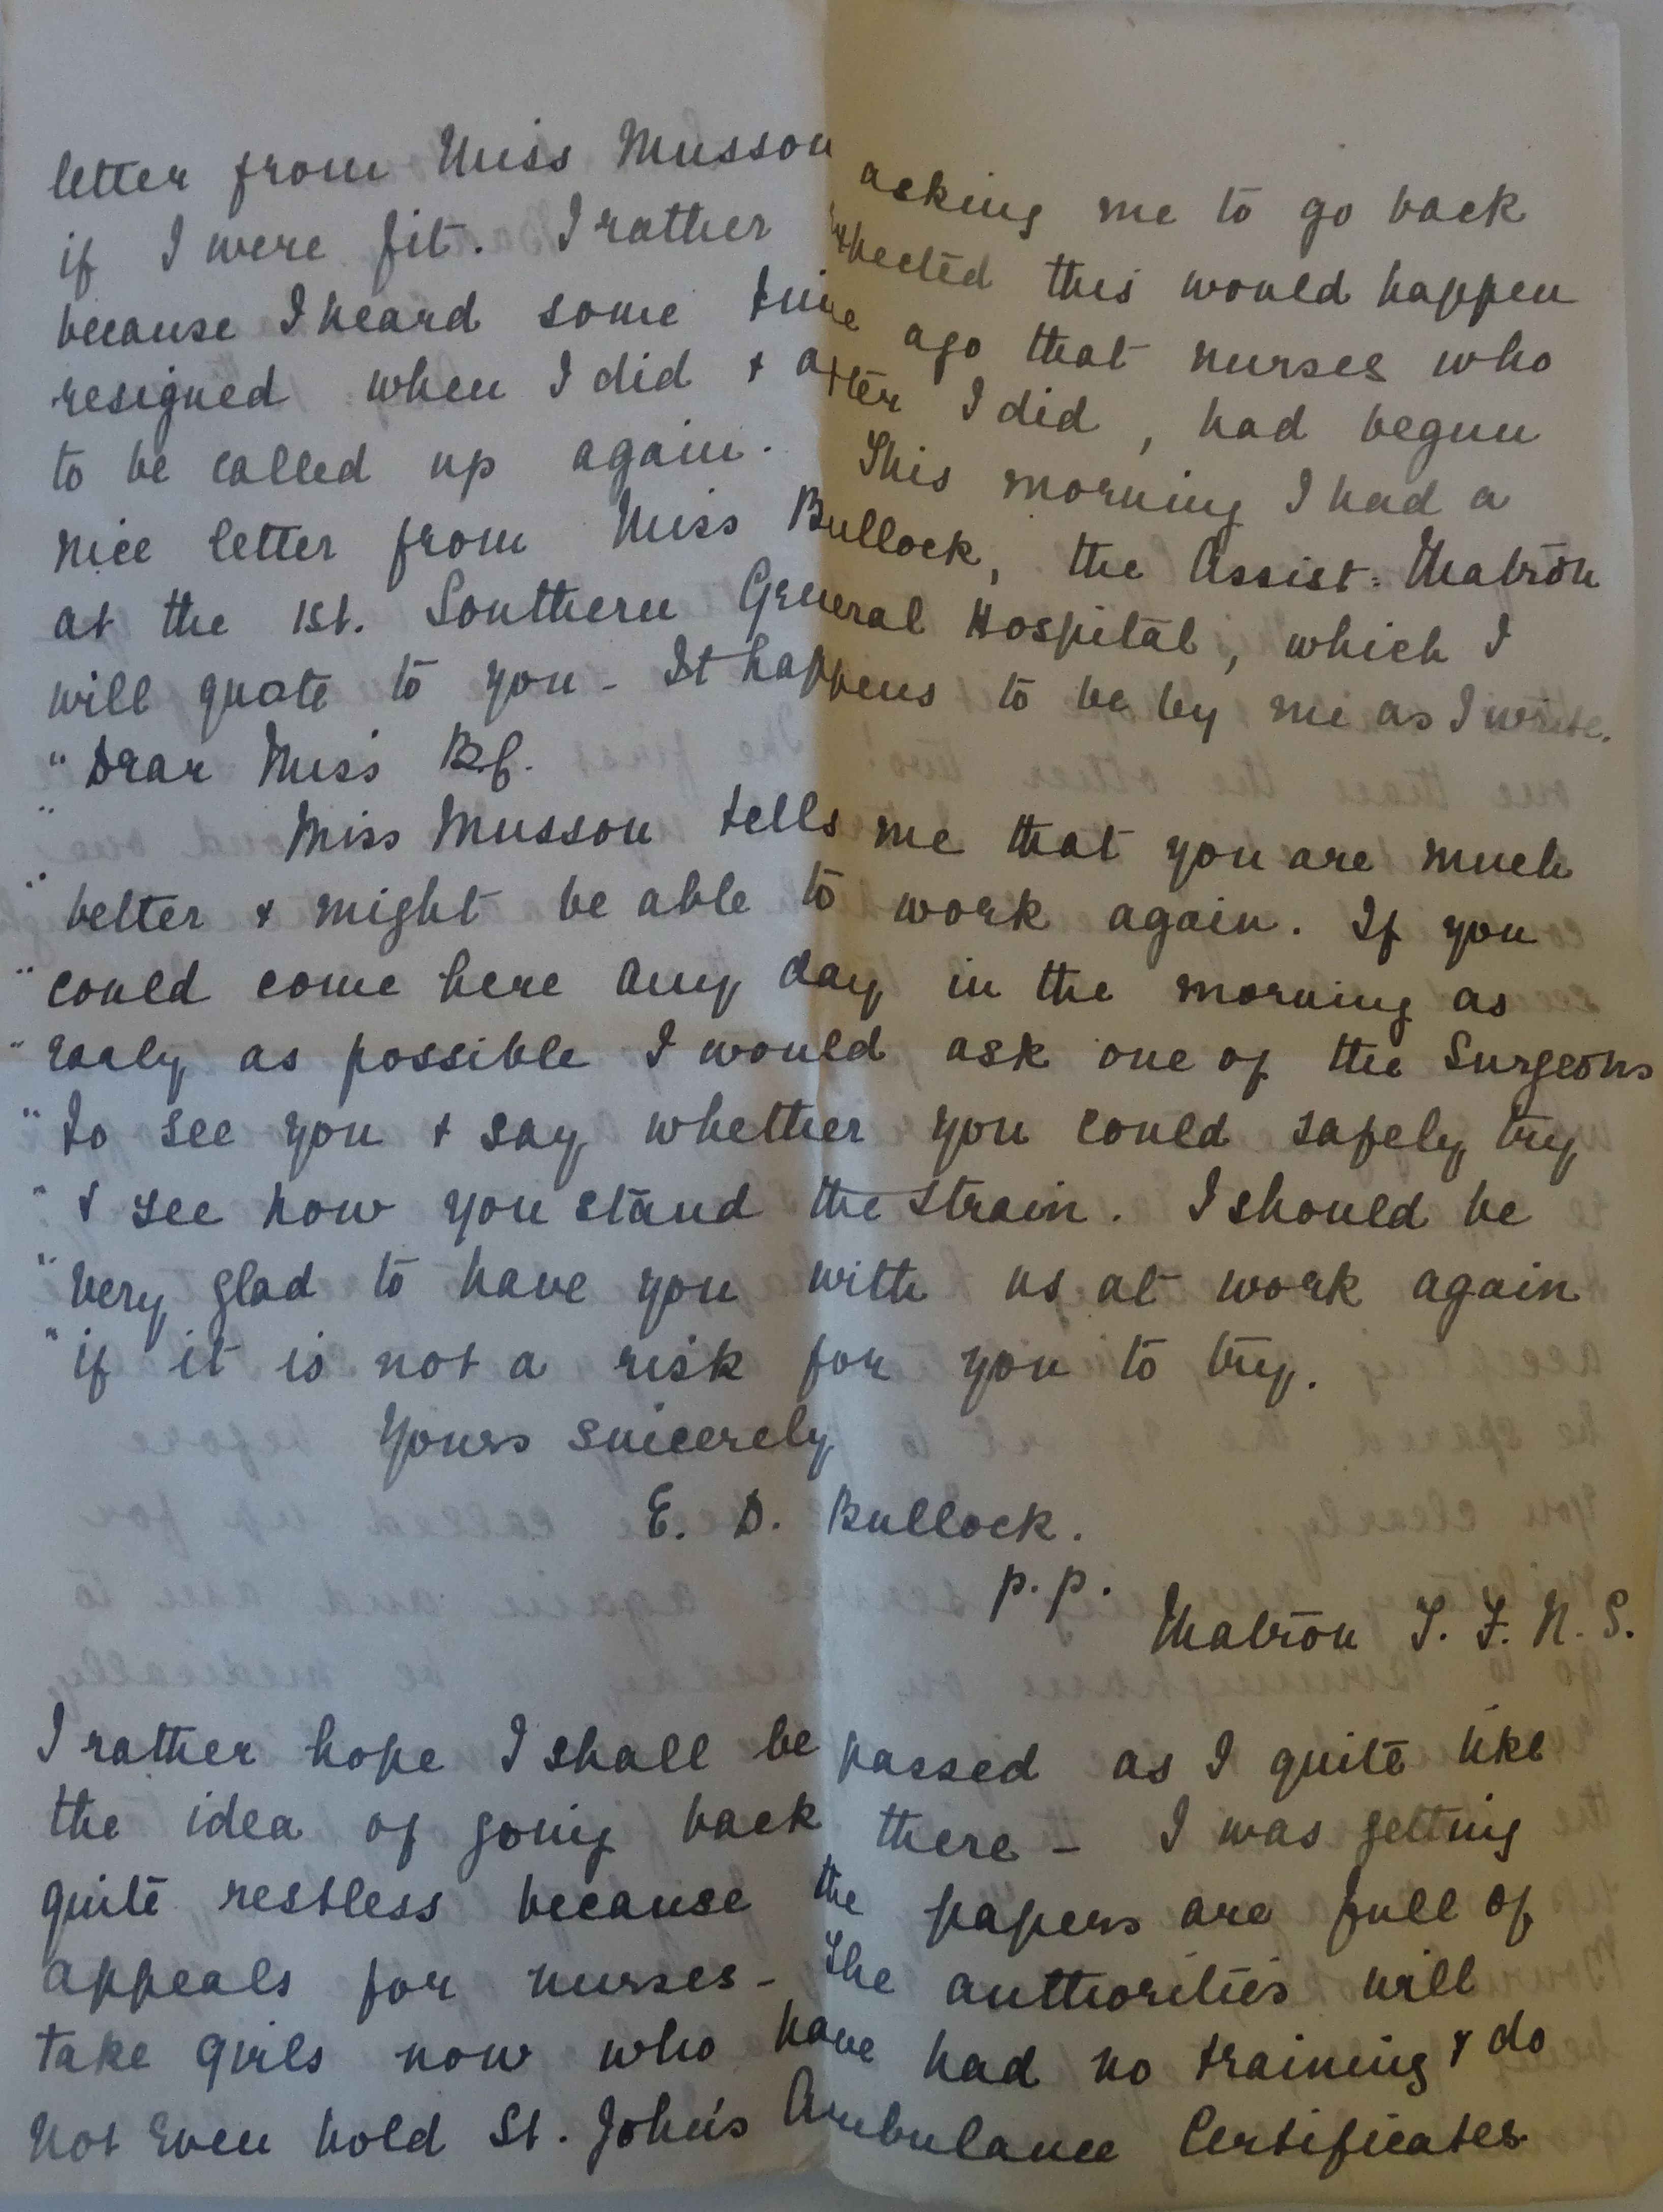 letter from Miss Musson asking me to go back
if I were fit. I rather expected this would happen
because I heard some time ago that nurses who
resigned when I did & after I did, had begun
to be called up again. This morning I had a
nice letter from Miss Bullock, the Assist: Matron
at the 1st. Southern General Hospital, which I
will quote to you - It happens to be by me as I write.
" Dear Miss B.C.
" Miss Musson tells me that you are much
" better & might be able to work again. If you
" could come here any day in the morning as
" early as possible I would ask one of the Surgeons
" to see you & say whether you could safely try
" & see how you stand the strain. I should be
" very glad to have you with us at work again
" if it is not a risk for you to try.
Yours sincerely
E. D. Bullock.
p.p.
Matron T. F. N. S.
I rather hope I shall be passed as I quite like
the idea of going back there - I was getting
quite restless because the papers are full of
appeals for nurses - The authorities will
take girls now who have had no training & do
not even hold St. John's Ambulance Certificates